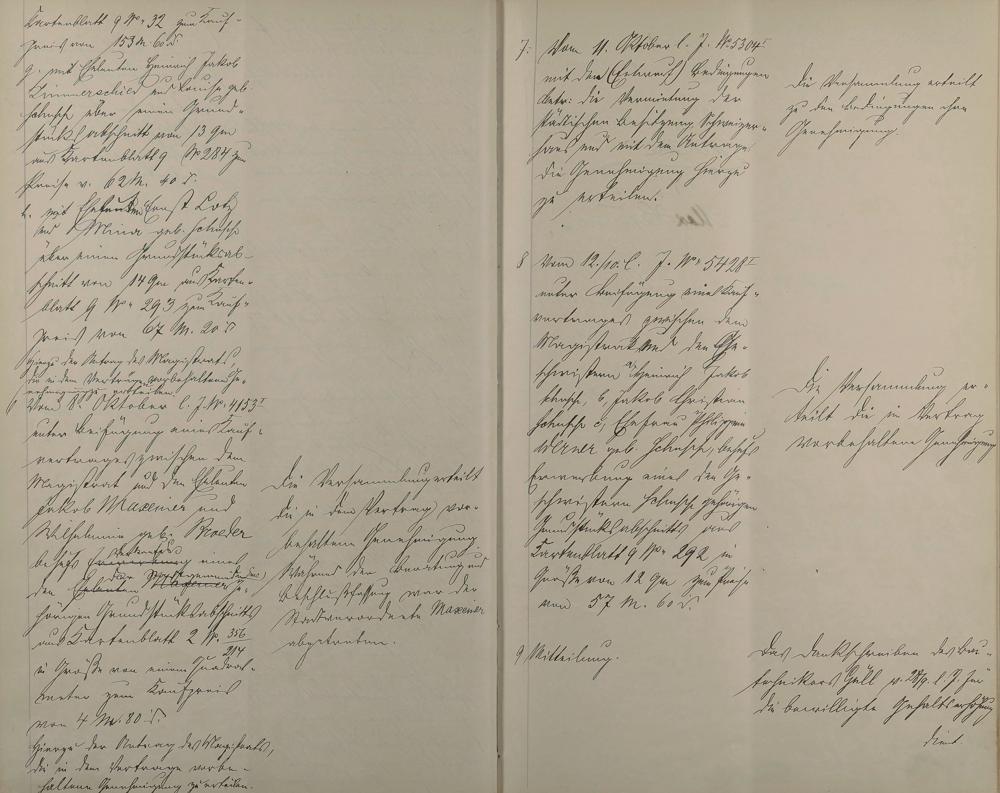 Kartenblatt 9 No 32 zum Kauf-
preis von 153 M. 60 d.
g. mit Eheleuten Heinrich Jakob
Zimmerschied und Louise geb.
über einen Grund-
stücksabschnitt von 13 qm
aus Kartenblatt 9 No 284 zum
Preise v. 62 M. 40 d.
h. mit Eheleuten Ernst Lotz
und Mina geb.
über einen Grundstücksab-
schnitt von 14 qm aus Karten-
blatt 9 No 293 zum Kauf-
preis von 67 M. 20 d
Hierzu der Antrag des Magistrats,
die in dem Vertrage vorbehaltene Ge-
nehmigung zu erteilen.
Vom 8. Oktober l. J. No 4153 I
unter Beifügung eines Kauf-
vertrages zwischen dem
Magistrat und den Eheleuten
Jakob Maxeiner und
Wilhelmine geb. Broeder
behufs Erwerbung eines
den Eheleuten Maxeiner ge-
hörigen Grundstücksabschnitts
aus Kartenblatt 2 No 356/214
in Größe von einem Quadrat-
meter zum Kaufpreis
von 4 M. 80 d.
Hierzu der Antrag des Magistrats,
die in dem Vertrage vorbe-
haltene Genehmigung zu erteilen.
Die Versammlung erteilt
die in dem Vertrag vor-
behaltene Genehmigung.
Während der Beratung und
Beschlußfassung war der
Stadtverordnete Maxeiner
abgetreten.
7. Vom 11. Oktober l. J. No 5304 I
mit den (Entwurf) Bedingungen
betr: die Vermietung der
städtischen Besitzung Schweizer-
haus und mit dem Antrage,
die Genehmigung hierzu
zu erteilen.
Die Versammlung erteilt
zu den Bedingungen ihre
Genehmigung.
8 Vom 12./10. l. J. No 5428 I
unter Beifügung eines Kauf-
vertrages zwischen dem
Magistrat und den Ge-
schwistern a, Heinrich Jakob
b, Jakob Christian
c, Ehefrau Philippine
Werner geb. behufs
Erwerbung eines den Ge-
schwistern gehörigen
Grundstücksabschnitts aus
Kartenblatt 9 No 292 in
Größe von 12 qm zum Preise
von 57 M. 60 d.
Die Versammlung er-
teilt die im Vertrag
vorbehaltene Genehmigung
9 Mitteilung.
Das Dankschreiben des Bau-
technikers Güll v. 28/9. l. J. für
die bewilligte Gehaltserhöhung
dient.